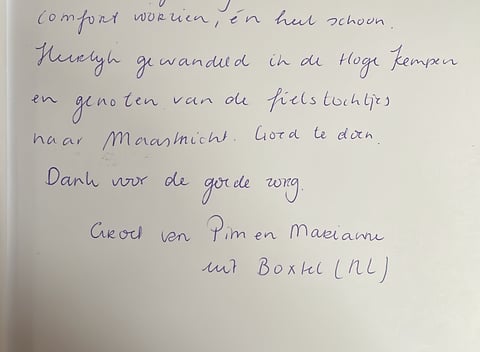 comfort voorzien, én heel schoon.
Heerlijk gewandeld in de Hoge Kempen
en genoten van de fietstochtjes
naar Maastricht. Goed te doen.
Dank voor de goede zorg.
Groet van Pim en Marianne
uit Boxtel (NL)